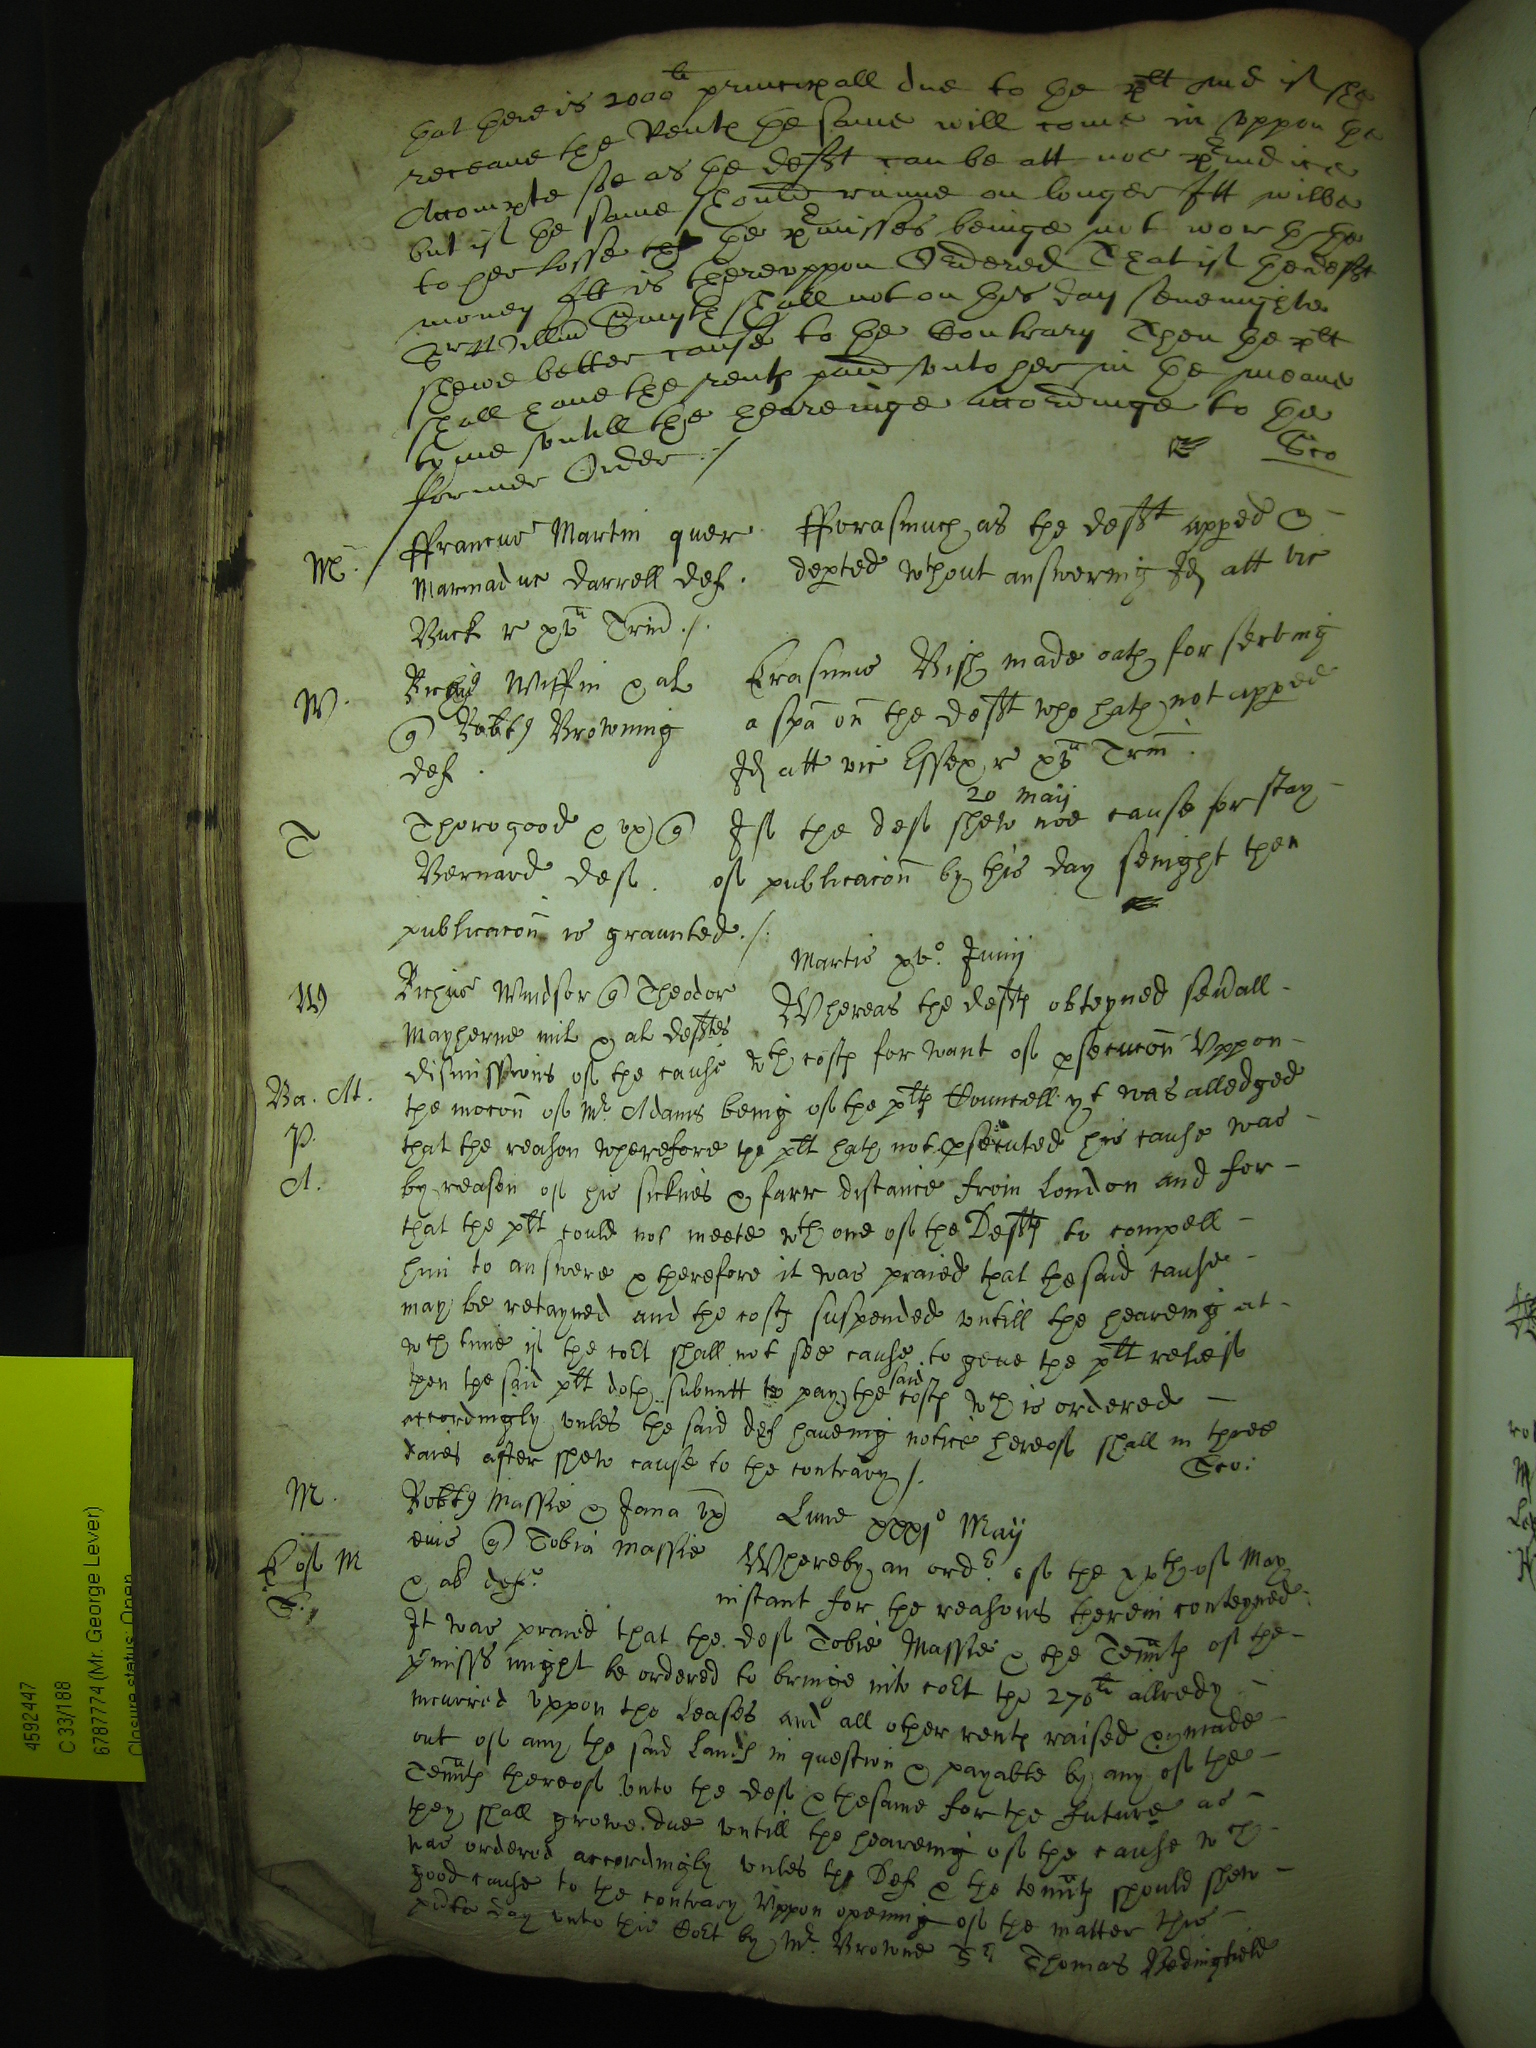 that there is 2000li principall due to the plt and if she
receaue the Rents the same will come in vppon the
Accompte soe as the defft can be att noe pr̃iudice
but if the same should runne on longer Itt wilbe
to her losse the pr̃misses beinge not worth the
money Itt is therevppon Ordered That if the defft
Sr Willm̃ Smyth shall not on this day sevenights
shewe better cause to the Contrary Then the plt
shall haue the rents paid vnto her in the meane
tyme vntill the heareinge accordinge to the
former Order ./
M ffranciis Martin quer fforasmuch as the defft apped &
Marmaduc Darrell def. depted wthout answering Id att vic
Buck r xva Trin̄d ./.
W. Richũs Wiffin & al Erasmus Bish made oath for serving
Robtus Browning a spa on the defft who hath not apped
def. Id att vic Essex r xva Trin̄.
20 Maij
T Thorogood & vx If the def shew noe cause for stay
Bernard def. of publicacoñ by this day senight then
publicacoñ is graunted ./.
Martis xvo. Junij
W Richus Windsor Theodor Whereas the deffts obteyned sevall
Mayherne mil & al deffts
dismissions of the cause wth costs for want of psecucoñ Vppon
Ba. At. the mocoñ of Mr Adams being of the plts Councell yt was alledged
P. that the reason wherefore the plt hath not psecuted his cause was
A. by reason of his sicknes & farr distance from London and for
that the plt could not meete wth one of the Deffts to compell
him to answere & therefore it was praied that the said cause
may be retayned and the costs suspended vntill the hearing at
wch time if the coĩt shall not see cause to geue the plt releif
then the said plt doth submitt to pay the said costs wch is ordered
accordingly vnles the said def haueing notice hereof shall in three
daies after shew cause to the contrary /.
M. Robtus Massie & Jana vx Lune xxxjo May
eius Tobia Massie Whereby an ordr. of the xxth of May
& al defts. instant for the reasons therein conteyned
It was praied that the def Tobie Massie & the Tenñts of the
p̃misss might be ordered to bringe into coĩt the 270li allredy
incurred vppon the Leases and all other rents raised & made
out of any the said Lands in question & payable by any of the
Tenñts thereof vnto the def & thesame for the future as
they shall growe due vntill the hearing of the cause wch
was ordered accordingly vnles the Def & the tenñts should shew
good cause to the contrary Vppon opening of the matter this
day vnto this Coĩt by Mr. Browne Sr Thomas Bedingfield
4592447
C 33/188
6787774 (Mr. George Lever)
Closure status: Open